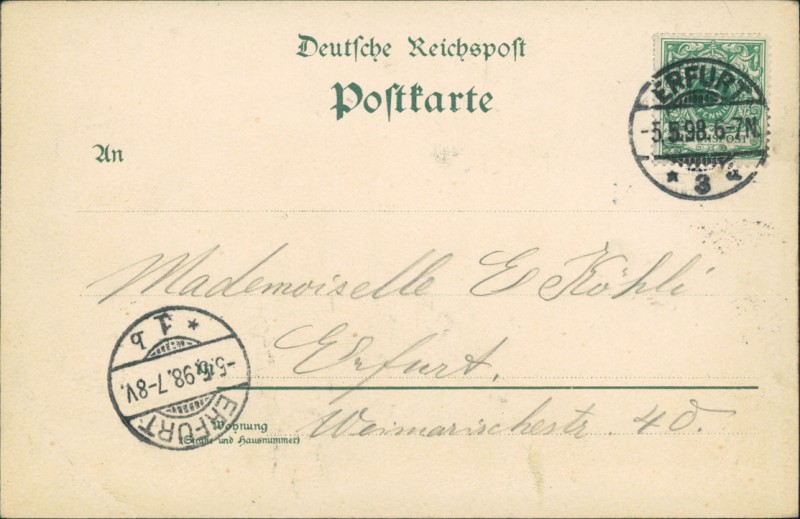 Deutsche Reichspost
Postkarte
ERFURT
-5.5.98.6-7N.
* 3 a
An
Mademoiselle E Köhli
Erfurt.
Weimarischestr. 40.
* 1 b
-5.5.98.7-8V.
ERFURT
Wohnung
(Straße und Hausnummer)